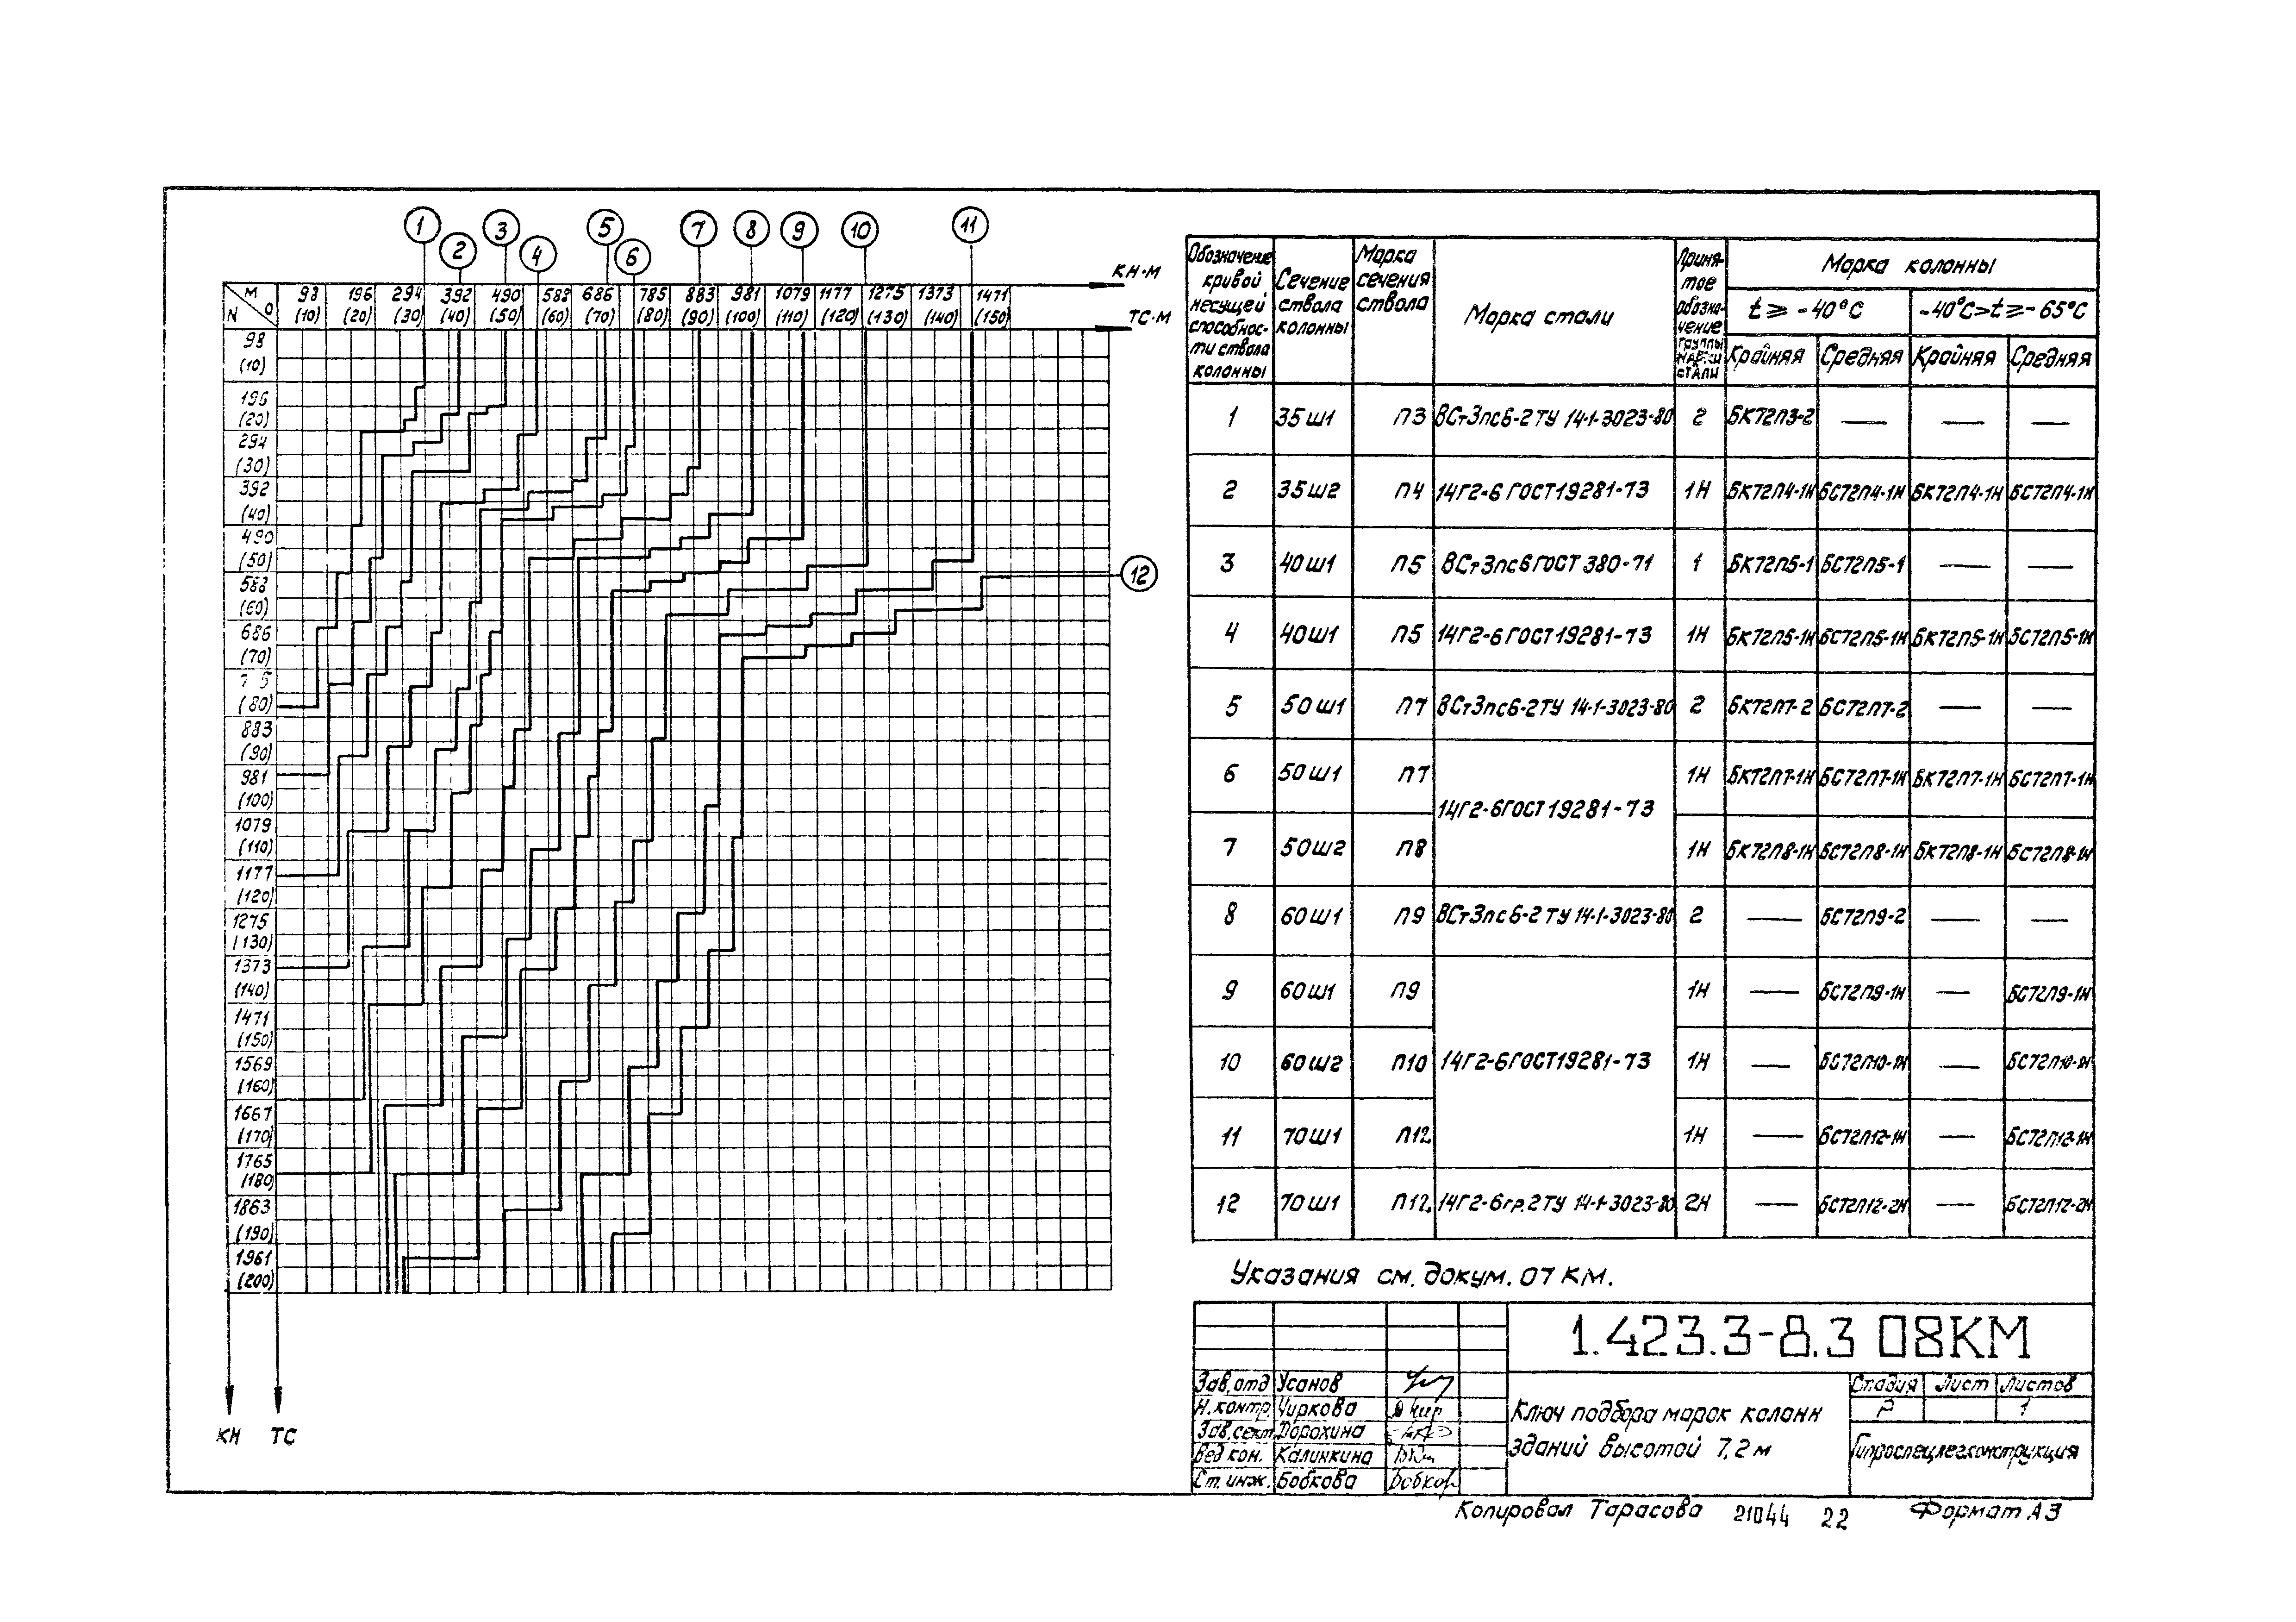 1 2 3 4 5 6 7 8 9 10 11
КН·М
М 98 196 294 392 490 588 686 785 883 981 1079 1177 1275 1373 1471
N 0 (10) (20) (30) (40) (50) (60) (70) (80) (90) (100) (110) (120) (130) (140) (150)
ТС·М
98
(10)
196
(20)
294
(30)
392
(40)
490
(50)
12
588
(60)
686
(70)
(80)
883
(90)
981
(100)
1079
(110)
1177
(120)
1275
(130)
1373
(140)
1471
(150)
1569
(160)
1667
(170)
1765
(180)
1863
(190)
1961
(200)
КН ТС
Обозначение кривой несущей способности ствола колонны
Сечение ствола колонны
Марка сечения ствола
Марка стали
Принятое обозначение группы марки стали
Марка колонны
t ≥ -40°С
-40°С>t≥-65°С
Крайняя Средняя Крайняя Средняя
1 35Ш1 П3 ВСт3пс6-2 ТУ 14-1-3023-80 2 БК72П3-2 — — —
2 35Ш2 П4 14Г2-6 ГОСТ19281-73 1Н БК72П4-1Н БС72П4-1Н БК72П4-1Н БС72П4-1Н
3 40Ш1 П5 ВСт3пс6 ГОСТ 380-71 1 БК72П5-1 БС72П5-1 — —
4 40Ш1 П5 14Г2-6 ГОСТ19281-73 1Н БК72П5-1Н БС72П5-1Н БК72П5-1Н БС72П5-1Н
5 50Ш1 П7 ВСт3пс6-2 ТУ 14-1-3023-80 2 БК72П7-2 БС72П7-2 — —
6 50Ш1 П7 1Н БК72П7-1Н БС72П7-1Н БК72П7-1Н БС72П7-1Н
14Г2-6 ГОСТ19281-73
7 50Ш2 П8 1Н БК72П8-1Н БС72П8-1Н БК72П8-1Н БС72П8-1Н
8 60Ш1 П9 ВСт3пс6-2 ТУ 14-1-3023-80 2 — БС72П9-2 — —
9 60Ш1 П9 1Н — БС72П9-1Н — БС72П9-1Н
10 60Ш2 П10 14Г2-6 ГОСТ19281-73 1Н — БС72П10-1Н — БС72П10-1Н
11 70Ш1 П12 1Н — БС72П12-1Н — БС72П12-1Н
12 70Ш1 П12 14Г2-6 гр.2 ТУ 14-1-3023-80 2Н — БС72П12-2Н — БС72П12-2Н
Указания см. докум. 07 КМ.
1.423.3-8.3 08КМ
Зав. отд Усанов
Н. контр. Чиркова
Зав. сект. Дорохина
Вед кон. Калинкина
Ст. инж. Бобкова Бобков
Ключ подбора марок колонн
зданий высотой 7,2 м
Стадия Лист Листов
Р 1
Гипроспецлегконструкция
Копировал Тарасова 21044 22 Формат А3